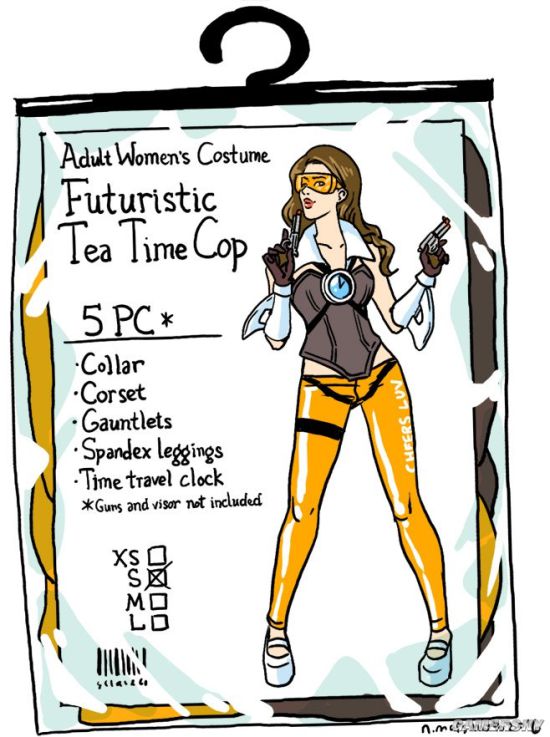 Adult Women's Costume
Futuristic
Tea Time Cop
5 PC *
· Collar
· Corset
· Gauntlets
· Spandex leggings
· Time travel clock
* Guns and visor not included
CHEERS LUV
XS
S
M
L
GAMERSKY